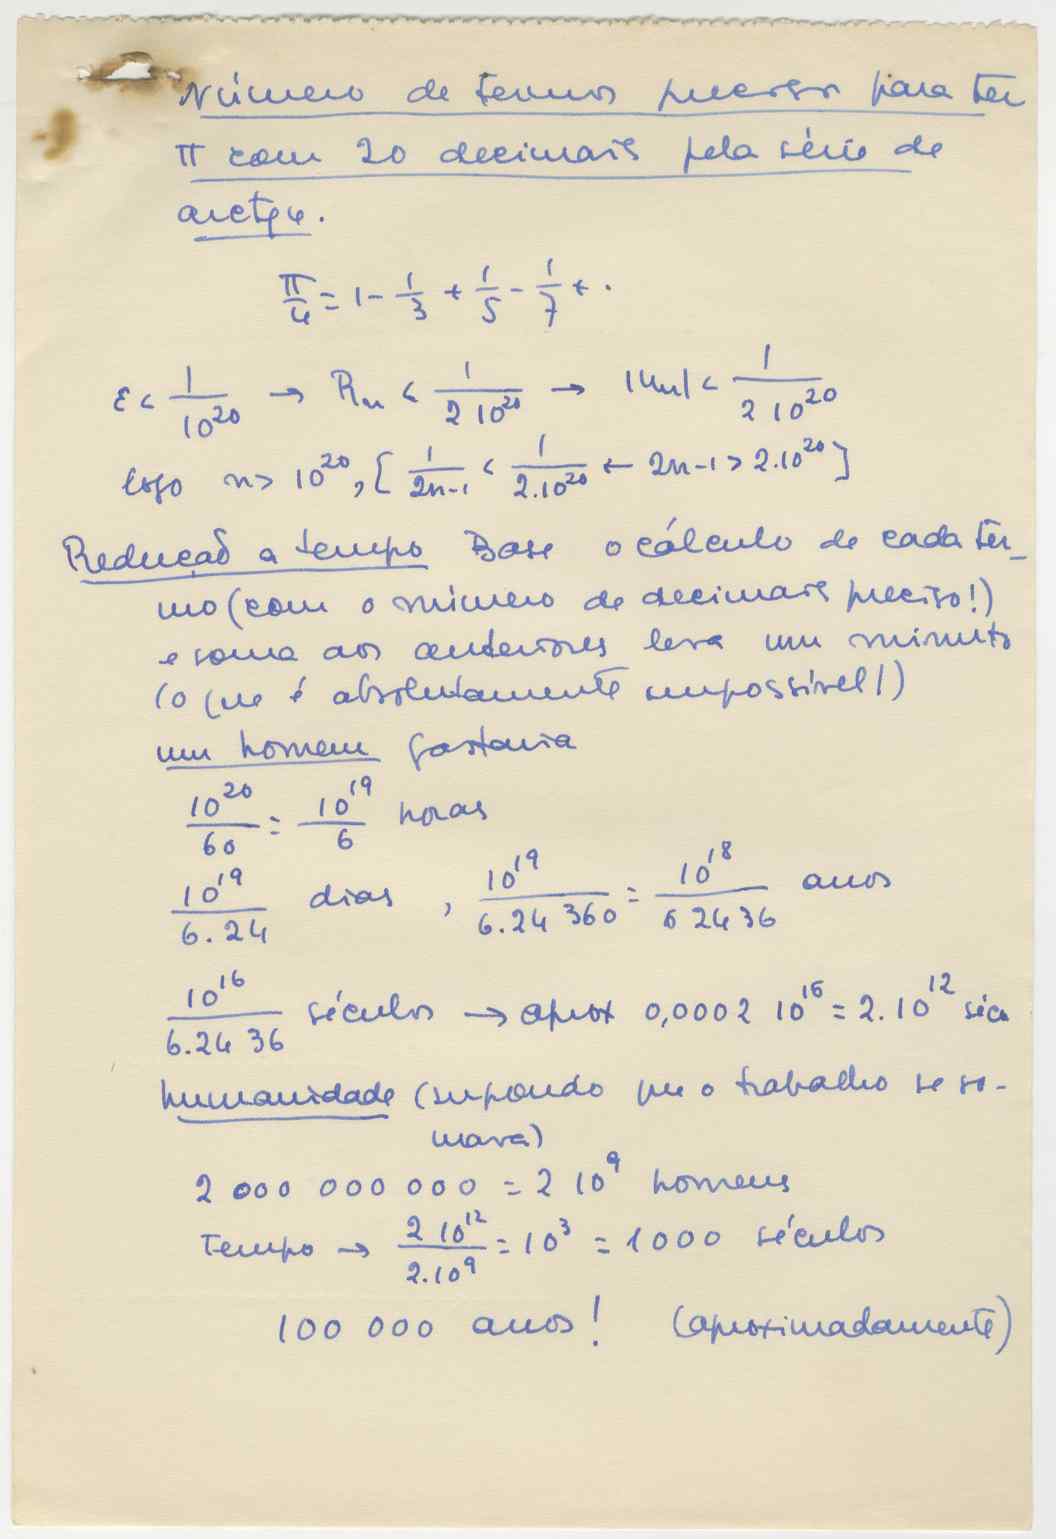 Número de termos preciso para ter
π com 20 decimais pela série de
arctg x.
π/4 = 1 - 1/3 + 1/5 - 1/7 + .
ε < 1/10^20 → Rn < 1/2 10^20 → |un| < 1/2 10^20
logo n > 10^20, [1/2n-1 < 1/2.10^20 ← 2n-1 > 2.10^20]
Redução a tempo Base o cálculo de cada ter-
mo (com o número de decimais preciso!)
e soma aos anteriores leva um minuto
(o que é absolutamente impossível!)
um homem gastaria
10^20/60 = 10^19/6 horas
10^19/6.24 dias, 10^19/6.24 360 = 10^18/6 24 36 anos
10^16/6.24 36 séculos → aprox 0,0002 10^16 = 2.10^12 séc
humanidade (supondo que o trabalho se so-
mava)
2 000 000 000 = 2 10^9 homens
Tempo → 2 10^12/2.10^9 = 10^3 = 1000 séculos
100 000 anos! (aproximadamente)